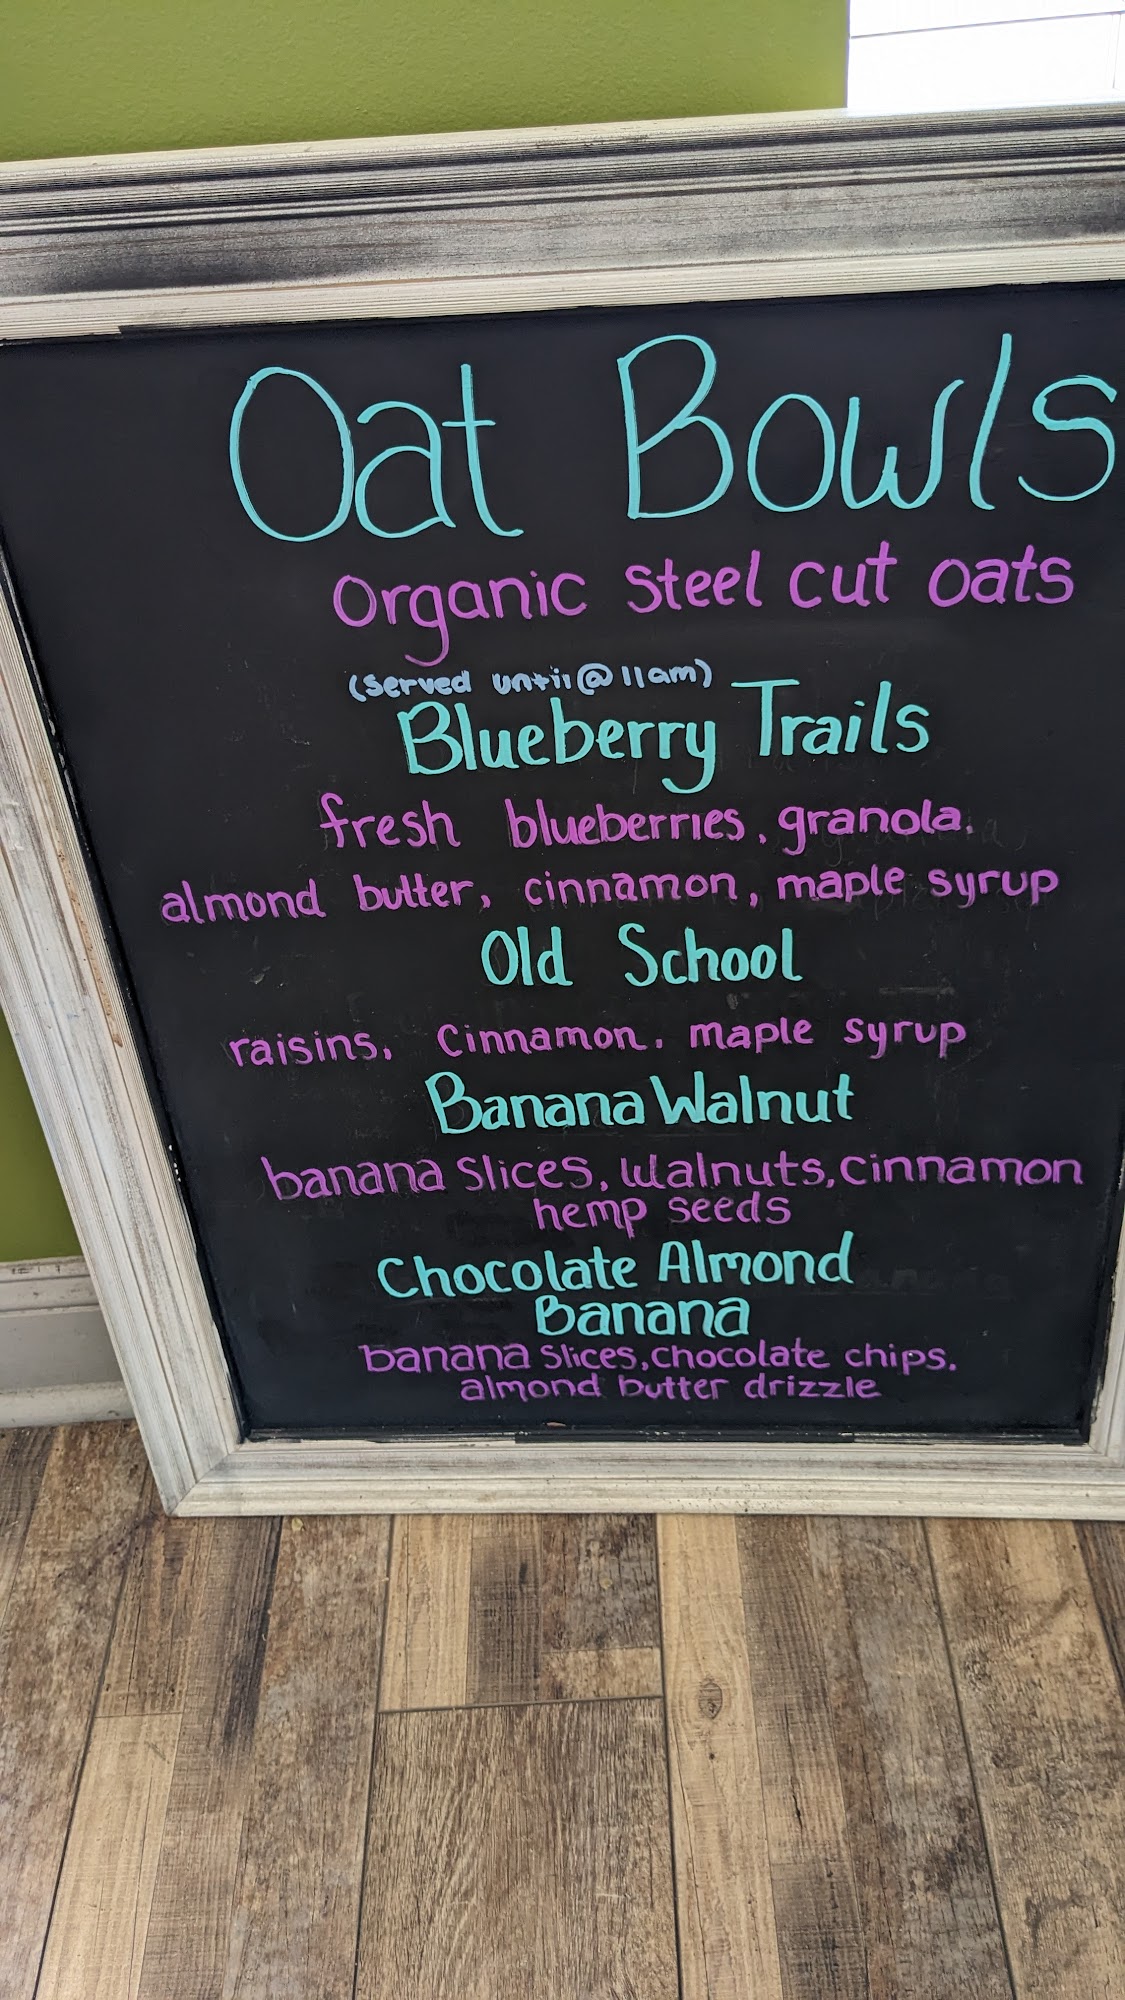 Oat Bowls
Organic Steel cut oats
(Served until @ 11am)
Blueberry Trails
fresh blueberries, granola,
almond butter, cinnamon, maple syrup
Old School
raisins, Cinnamon, maple syrup
Banana Walnut
banana slices, walnuts, cinnamon
hemp seeds
Chocolate Almond
Banana
banana slices, chocolate chips,
almond butter drizzle